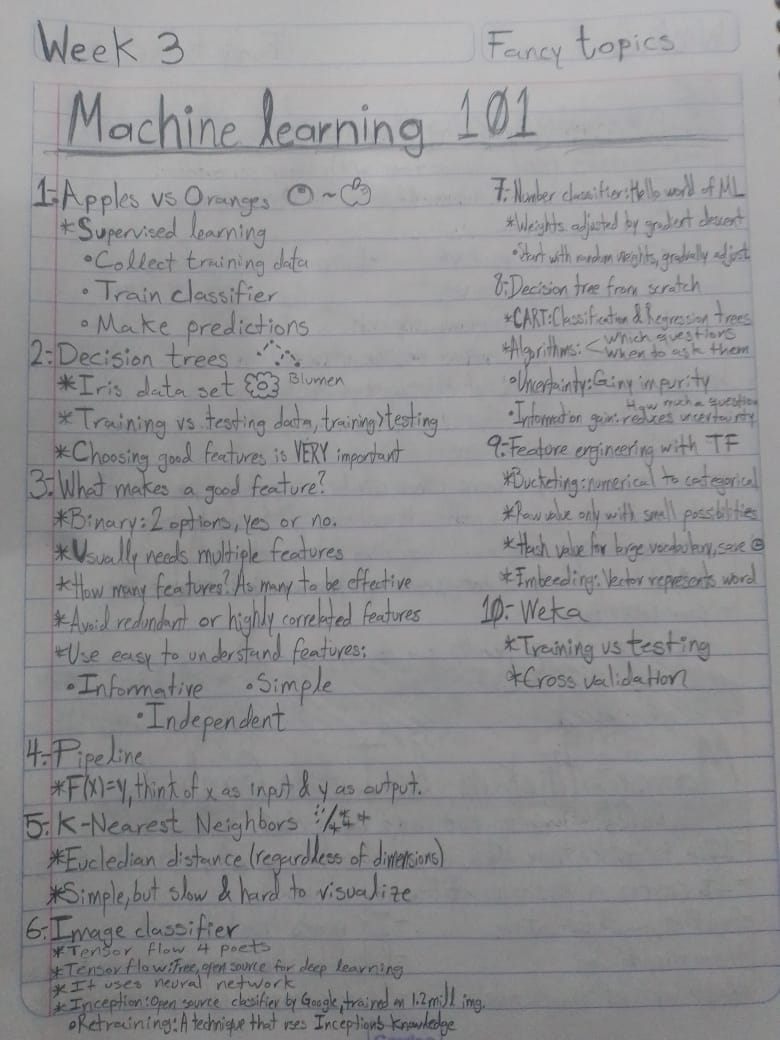 Week 3
Fancy topics
Machine learning 101
1:-Apples vs Oranges ~
*Supervised learning
•Collect training data
• Train classifier
• Make predictions
2:-Decision trees
*Iris data set Blumen
*Training vs. testing data, training>testing
*Choosing good features is VERY important
3:-What makes a good feature?
*Binary: 2 options, yes or no.
*Usually needs multiple features
*How many features? As many to be effective
*Avoid redundant or highly correlated features
*Use easy to understand features:
•Informative •Simple
•Independent
4:-Pipeline
*F(x)=y, think of x as input & y as output.
5:-K-Nearest Neighbors
*Eucledian distance (regardless of dimensions)
*Simple, but slow & hard to visualize
6:-Image classifier
*Tensor flow 4 poets
*Tensor flow: Free, open source for deep learning
*It uses neural network
*Inception: Open source classifier by Google, trained on 1.2 mill img.
•Retraining: A technique that uses Inception's knowledge
7:-Number classifier: Hello word of ML
*Weights adjusted by gradient descent
•Start with random weights, gradually adjust
8:-Decision tree from scratch
*CART: Classification & Regression trees
*Algorithms: < which questions
when to ask them
•Uncertainty: Giny impurity
•Information gain: How much a question
reduces uncertainty
9:-Feature engineering with TF
*Bucketing: numerical to categorical
*Raw value only with small possibilities
*Hash value for large vocabulary, save
*Imbeeding: Vector represents word
10:- Weka
*Training vs testing
*Cross validation